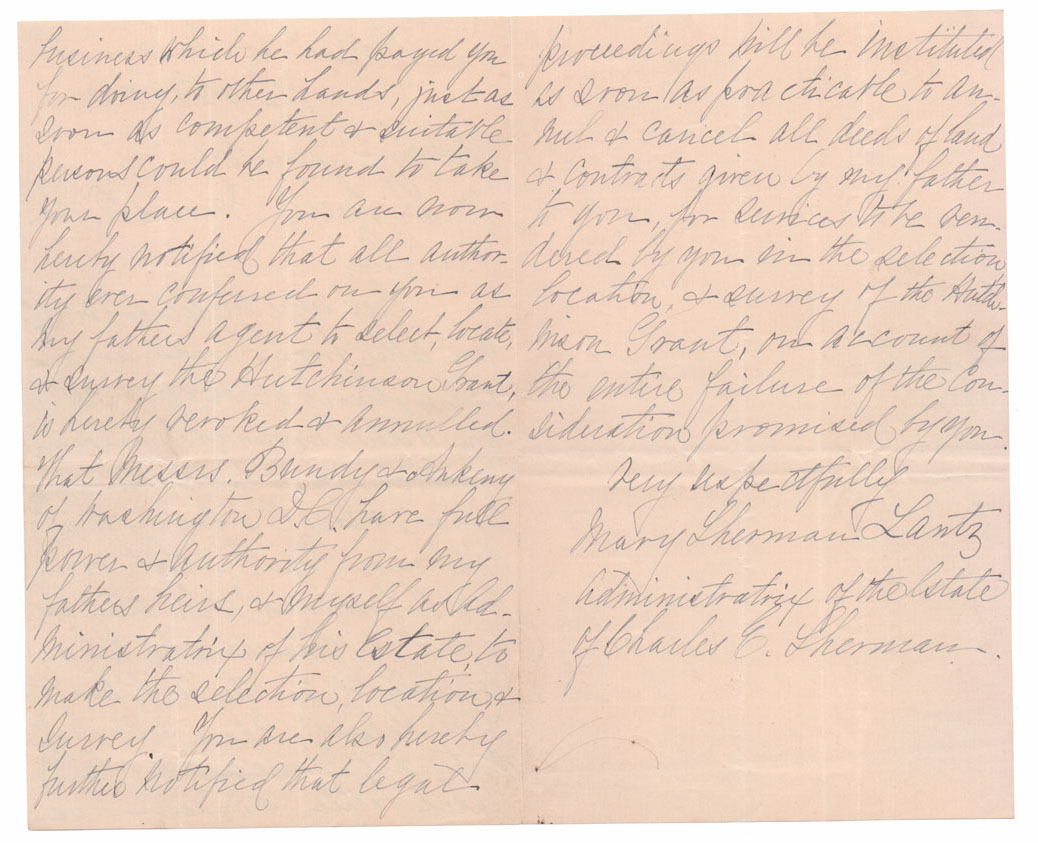 business which he had payed you
for doing, to other hands, just as
soon as competent & suitable
persons could be found to take
your place. You are now
hereby notified that all author-
ity ever confered on you as
my fathers agent to select, locate,
& survey the Hutchinson Grant,
is hereby revoked & annulled.
That Messrs. Bundy & Ankeny
of Washington D.C. have full
power & authority from my
fathers heirs, & myself as Ad-
ministratrix of his Estate, to
make the selection, location, &
survey. You are also hereby
further notified that legal
proceedings will be instituted
as soon as practicable to an-
nul & cancel all deeds of land
& contracts given by my father
to you, for services to be ren-
dered by you in the selection
location, & survey of the Hutch-
inson Grant, on account of
the entire failure of the Con-
sideration promised by you.
Very respectfully
Mary Sherman Lantz
Administratrix of the Estate
of Charles E. Sherman.